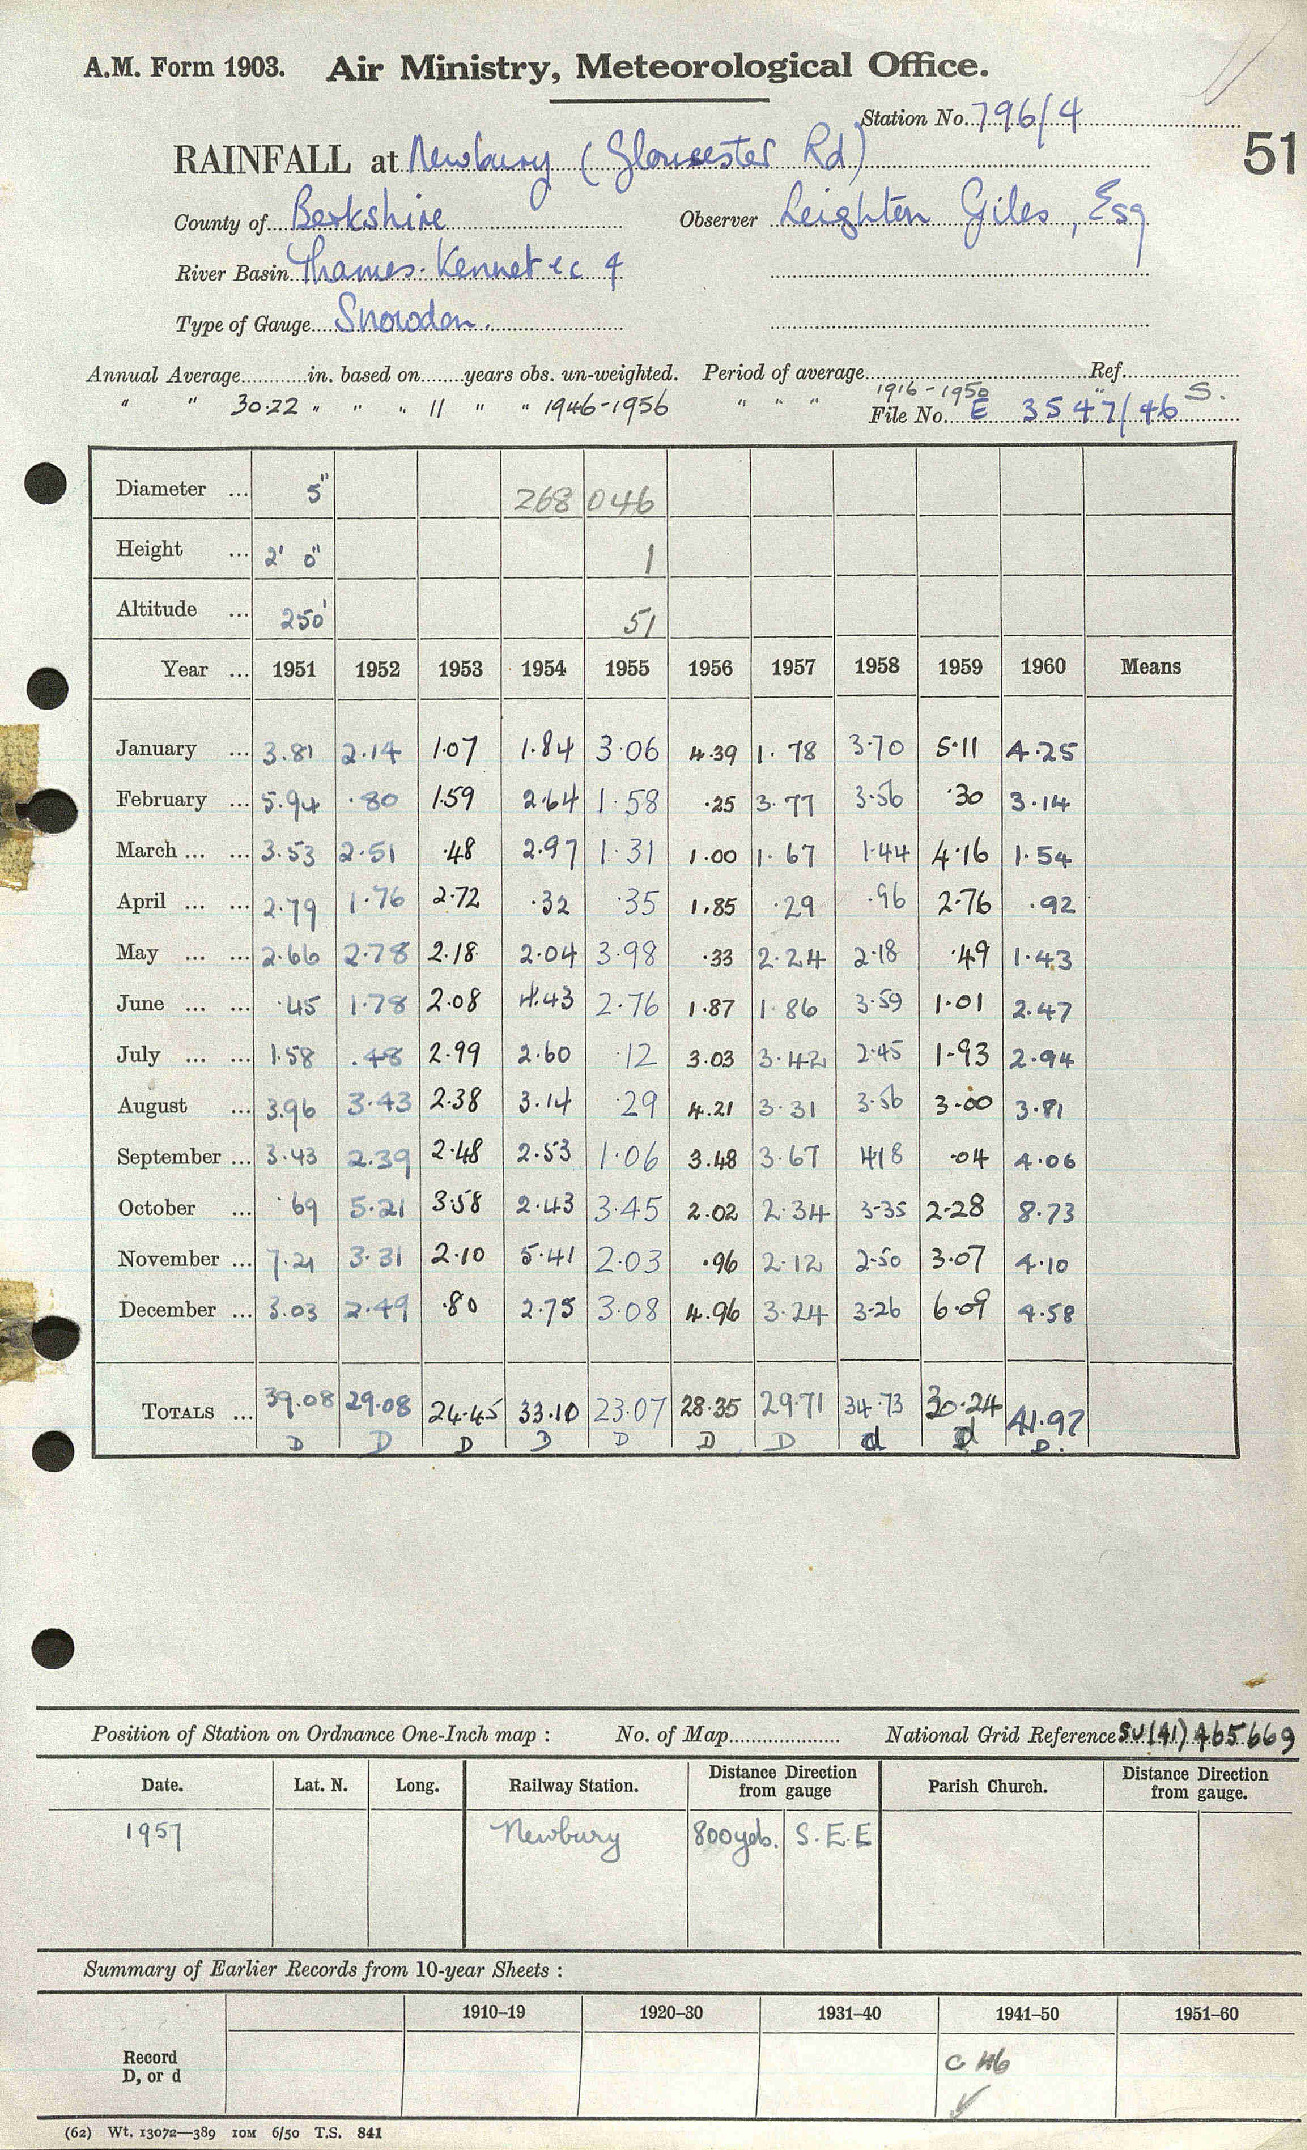 A.M. Form 1903. Air Ministry, Meteorological Office.
Station No. 796/4
RAINFALL at Newbury (Gloucester Rd)
51
County of Berkshire Observer Leighton Giles, Esq
River Basin Thames. Kennet &c 4
Type of Gauge Snowdon.
Annual Average............in. based on........years obs. un-weighted. Period of average............Ref............
" " 30.22 " " " 11 " " " 1946-1956 " " " 1916-1950 " S.
File No. E 3547/46
Diameter ... 5" 268 046
Height ... 2' 0" 1
Altitude ... 250' 51
Year ... 1951 1952 1953 1954 1955 1956 1957 1958 1959 1960 Means
January ... 3.81 2.14 1.07 1.84 3.06 4.39 1.78 3.70 5.11 4.25
February ... 5.94 .80 1.59 2.64 1.58 .25 3.77 3.56 .30 3.14
March ... ... 3.53 2.51 .48 2.97 1.31 1.00 1.67 1.44 4.16 1.54
April ... ... 2.79 1.76 2.72 .32 .35 1.85 .29 .96 2.76 .92
May ... ... 2.66 2.78 2.18 2.04 3.98 .33 2.24 2.18 .49 1.43
June ... ... .45 1.78 2.08 4.43 2.76 1.87 1.86 3.59 1.01 2.47
July ... ... 1.58 .48 2.99 2.60 .12 3.03 3.42 2.45 1.93 2.94
August ... 3.96 3.43 2.38 3.14 .29 4.21 3.31 3.56 3.00 3.81
September ... 3.43 2.39 2.48 2.53 1.06 3.48 3.67 4.18 .04 4.06
October ... .69 5.21 3.58 2.43 3.45 2.02 2.34 3.35 2.28 8.73
November ... 7.21 3.31 2.10 5.41 2.03 .96 2.12 2.50 3.07 4.10
December ... 3.03 2.49 .80 2.75 3.08 4.96 3.24 3.26 6.09 4.58
TOTALS ... 39.08 29.08 24.45 33.10 23.07 28.35 29.71 34.73 30.24 41.97
D D D D D D D d d D.
Position of Station on Ordnance One-Inch map : No. of Map.................... National Grid Reference SU(41) 465669
Date. Lat. N. Long. Railway Station. Distance Direction from gauge Parish Church. Distance Direction from gauge.
1957 Newbury 800yds. S.E.E
Summary of Earlier Records from 10-year Sheets :
1910–19 1920–30 1931–40 1941–50 1951–60
Record
D, or d
C 46
(62) Wt. 13072—389 10M 6/50 T.S. 841